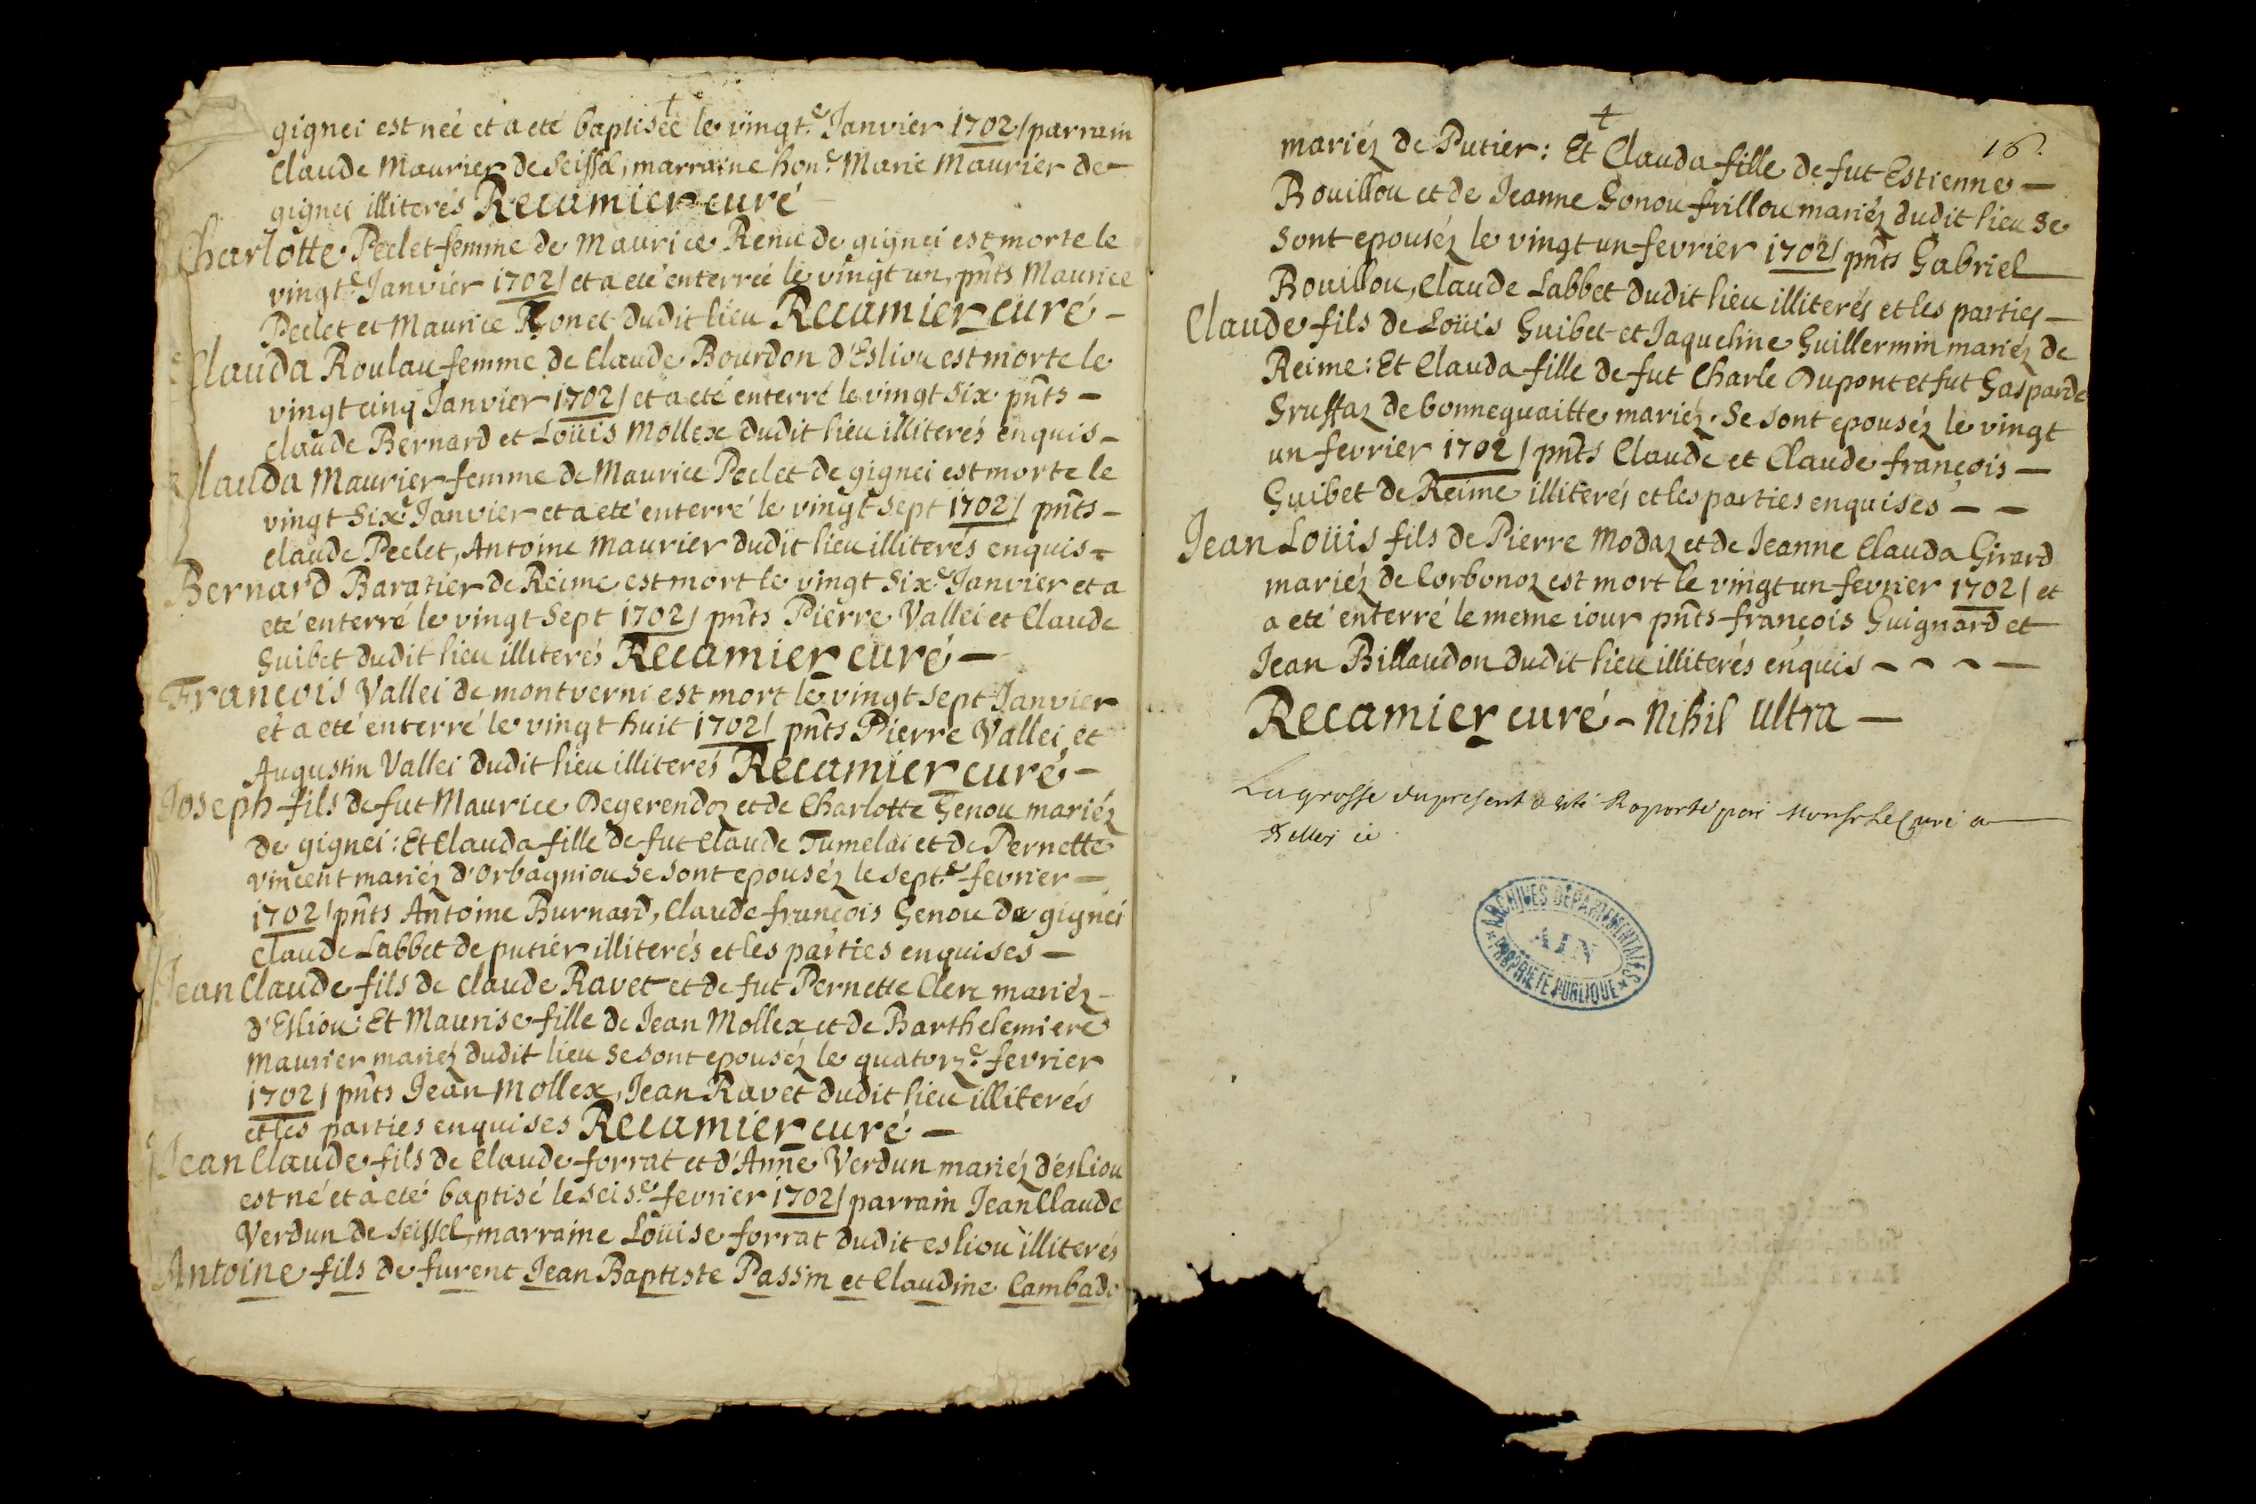 gignei est neé et a eté baptiseé le vingt.e Ianvier 1702/ parrain
Claude Maurier de Seissel, marraine hon.e Marie Maurier de
gignei illiterés Recamier curé
Charlotte Peclet femme de Maurice Renu de gignei est morte le
vingt.e Ianvier 1702/ et a eté enterreé le vingt un, pñts Maurice
Peclet et Maurice Ronet dudit lieu Recamier curé –
Clauda Roulau femme de Claude Bourdon d'Esliou est morte le
vingt cinq Ianvier 1702/ et a eté enterré le vingt six pñts –
Claude Bernard et Loüis Mollex dudit lieu illiterés enquis –
Clauda Maurier femme de Maurice Peclet de gignei est morte le
vingt six.e Ianvier et a eté enterré le vingt sept 1702/ pñts –
claude Peclet, Antoine Maurier dudit lieu illiterés enquis –
Bernard Baratier de Reime est mort le vingt six.e Ianvier et a
eté enterré le vingt sept 1702/ pñts Pierre Vallei et Claude
Guibet dudit lieu illiterés Recamier curé –
François Vallei de montverni est mort le vingt sept Ianvier
et a eté enterré le vingt huit 1702/ pñts Pierre Vallei et
Augustin Vallei dudit lieu illiterés Recamier curé –
Ioseph fils de fut Maurice Degerendoz et de Charlotte Genou mariéz
de gignei: Et Clauda fille de fut Claude Tumelai et de Pernette
vincent mariéz d'Orbagniou se sont epouséz le sept.e fevrier –
1702/ pñts Antoine Burnard, Claude françois Genou de gignei
Claude Labbet de putier illiterés et les parties enquises –
Iean Claude fils de Claude Ravet et de fut Pernette Clerc mariéz –
d'Esliou: Et Maurise fille de Iean Mollex et de Barthelemiere
Maurier mariéz dudit lieu se sont epouséz le quatorz.e fevrier
1702/ pñts Iean Mollex, Iean Ravet dudit lieu illiterés
et les parties enquises Recamier curé –
Iean Claude fils de Claude forrat et d'Anne Verdun mariéz d'esliou
est né et a eté baptisé le seis.e fevrier 1702/ parrain Iean Claude
Verdun de Seissel, marraine Loüise forrat dudit esliou illiterés
Antoine fils de furent Iean Baptiste Passin et Claudine Cambado
16.
mariéz de Putier: Et Clauda fille de fut Estienne –
Rouillou et de Ieanne Gonou frillou mariéz dudit lieu se
sont epouséz le vingt un fevrier 1702/ pñts Gabriel
Rouillou, Claude Labbet dudit lieu illiterés et les parties –
Claude fils de Loüis Guibet et Iaqueline Guillermin mariéz de
Reime: Et Clauda fille de fut Charle Dupont et fut Gasparde
Gruffaz de bonneguaitte mariéz. Se sont epouséz le vingt
un fevrier 1702/ pñts Claude et Claude françois –
Guibet de Reime illiterés et les parties enquises – –
Iean Loüis fils de Pierre Modaz et de Ieanne Clauda Girard
mariéz de Corbonoz est mort le vingt un fevrier 1702/ et
a eté enterré le meme iour pñts françois Guignard et
Iean Billaudon dudit lieu illiterés enquis – – – –
Recamier curé – Nihil Ultra –
La grosse du present a esté Raporté par Monsr Le Curé a
ARCHIVES DÉPARTEMENTALES
AIN
PROPRIÉTÉ PUBLIQUE